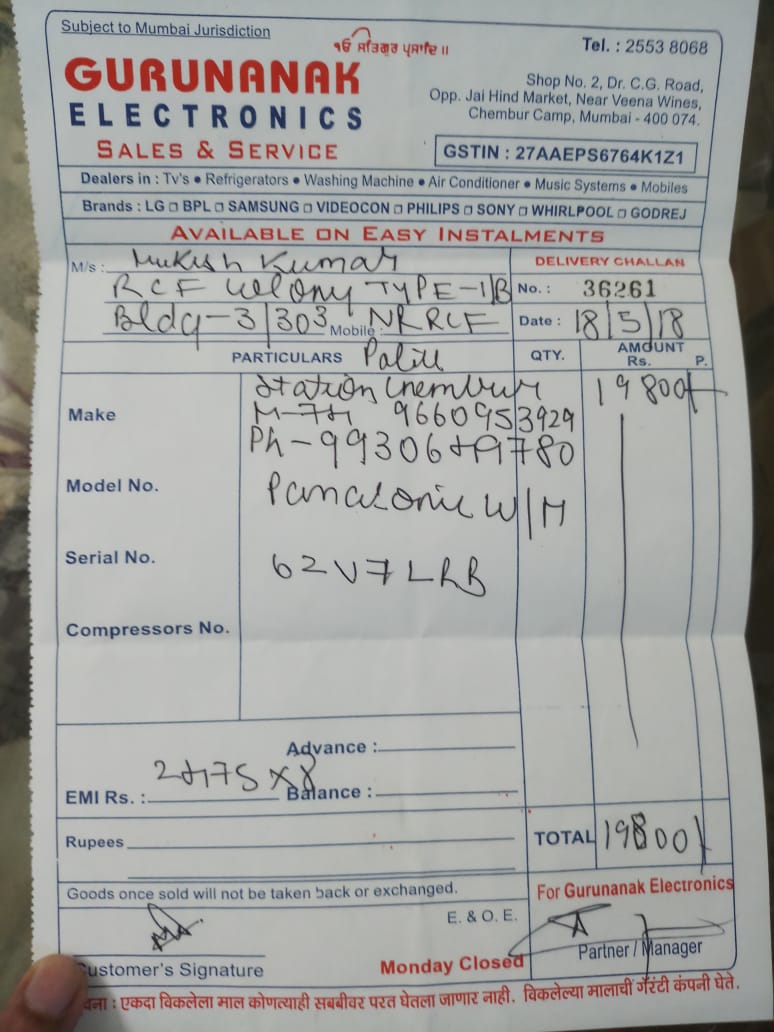 Subject to Mumbai Jurisdiction
ੴ ਸਤਿਗੁਰ ਪ੍ਰਸਾਦਿ॥
Tel. : 2553 8068
GURUNANAK
ELECTRONICS
SALES & SERVICE
Shop No. 2, Dr. C.G. Road,
Opp. Jai Hind Market, Near Veena Wines,
Chembur Camp, Mumbai - 400 074.
GSTIN : 27AAEPS6764K1Z1
Dealers in : Tv's • Refrigerators • Washing Machine • Air Conditioner • Music Systems • Mobiles
Brands : LG □ BPL □ SAMSUNG □ VIDEOCON □ PHILIPS □ SONY □ WHIRLPOOL □ GODREJ
AVAILABLE ON EASY INSTALMENTS
M/s : Mukesh Kumar
DELIVERY CHALLAN
RCF colony TYPE-1/B
No. : 36261
Bldg-3/303 Mobile : NR RCF
Date : 18/5/18
PARTICULARS
QTY.
AMOUNT
Rs. P.
Station Chembur 19800/-
Make
9660953929
Model No. Panasonic W/M
Serial No. 62V7LRB
Compressors No.
Advance :
EMI Rs. : 2475 x 8 Balance :
Rupees
TOTAL 19800/-
Goods once sold will not be taken back or exchanged.
For Gurunanak Electronics
E. & O. E.
Partner / Manager
Customer's Signature
Monday Closed
एकदा विकलेला माल कोणत्याही सबबीवर परत घेतला जाणार नाही. विकलेल्या मालाची गॅरंटी कंपनी घेते.